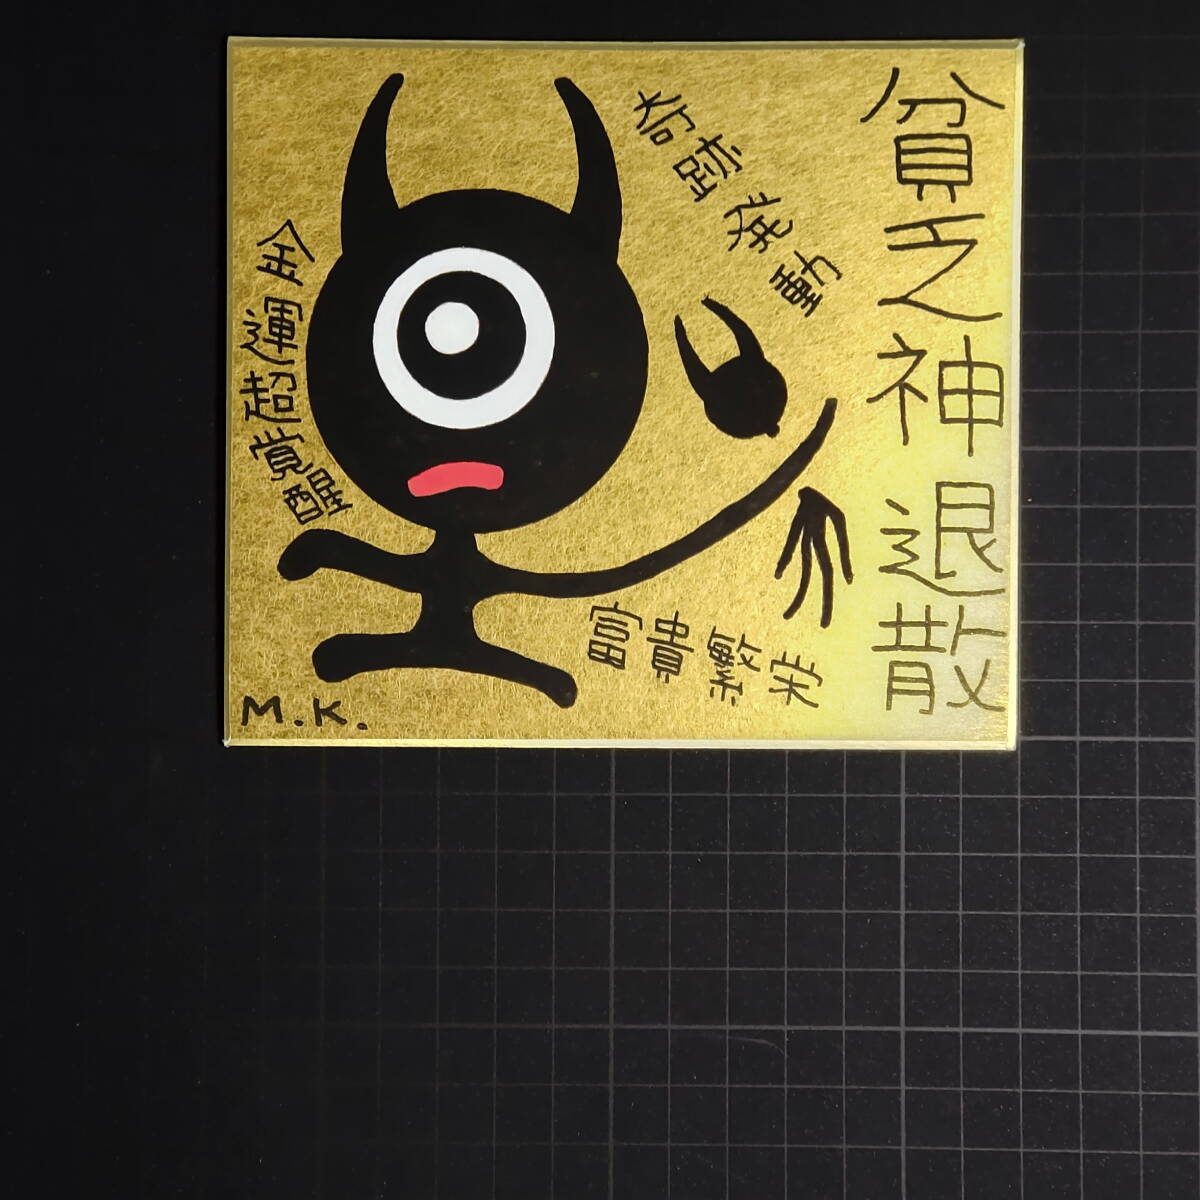 貧乏神退散
奇跡発動
金運超覚醒
富貴繁栄
M.K.